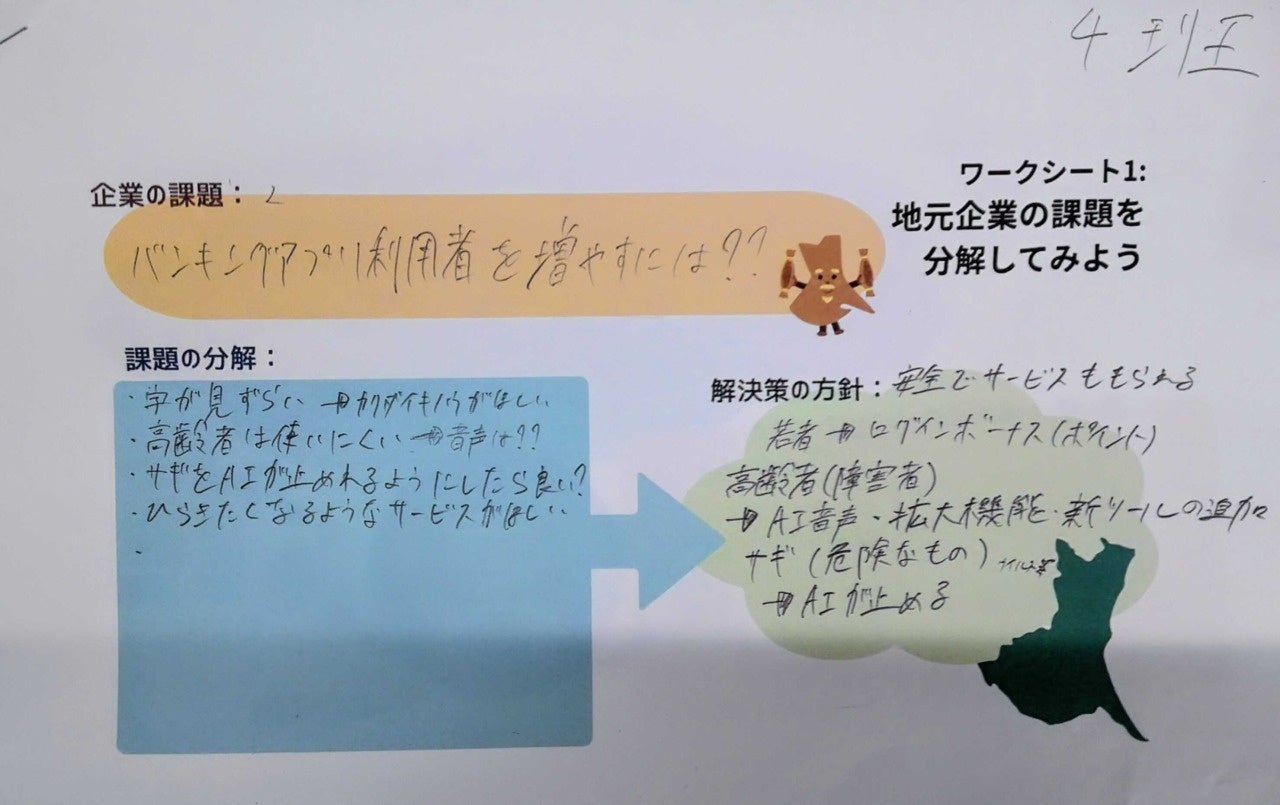 4班
ワークシート1:
地元企業の課題を
分解してみよう
企業の課題：
バンキングアプリ利用者を増やすには??
課題の分解：
・字が見ずらい → カクダイキノウがほしい
・高齢者は使いにくい → 音声は??
・サギをAIが止めれるようにしたら良い?
・ひらきたくなるようなサービスがほしい
・
解決策の方針：安全でサービスももられる
若者 → ログインボーナス(ポイント)
高齢者(障害者)
→ AI音声・拡大機能・新ツールの追加
サギ(危険なもの)
→ AIが止める